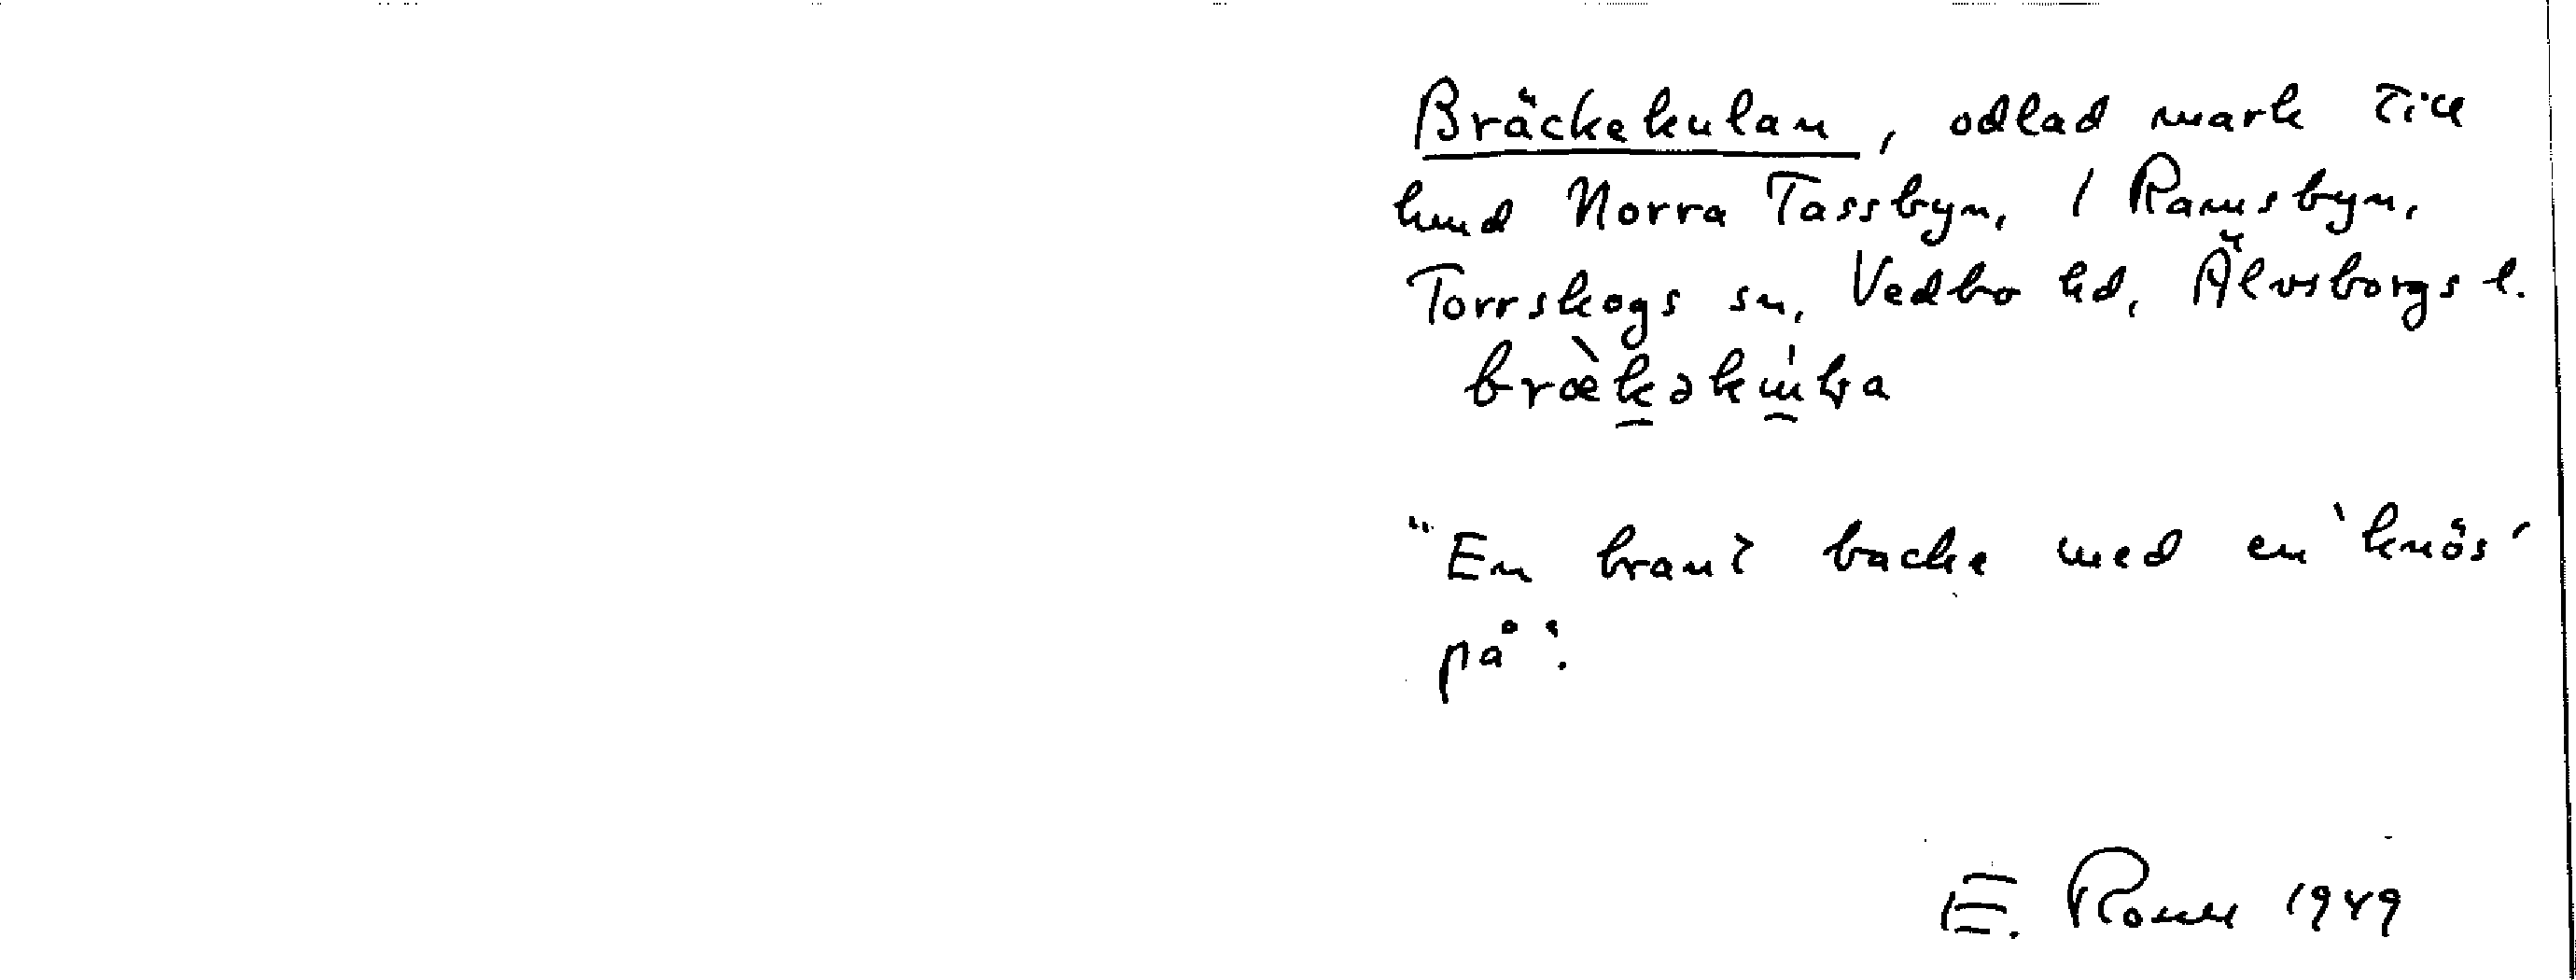 Bräckekulan, odlad mark till
hmd Norra Tassbyn, 1 Ramsbyn,
Torrskogs sn, Vedbo hd, Älvsborgs l.
"En brant backe med en 'knös'
på".
E. 1949